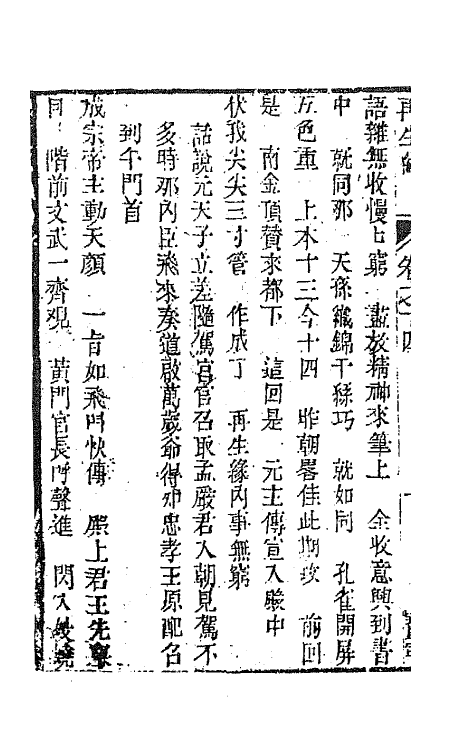 再生緣 卷十四
語雜無收慢七窮 盡放精神來筆上 全收意興到書
中 就同那 天孫織錦千絲巧 就如同 孔雀開屏
五色重 上本十三今十四 昨朝畧佳此期攻 前回
是 南金頂贊來都下 這回是 元主傳宣入殿中
伏我尖尖三寸管 作成了 再生緣內事無窮
話說元天子立差隨駕宮官召取孟嚴君入朝見駕不
多時那內臣飛來奏道啟萬歲爺得知忠孝王原配名
到午門首
成宗帝主動天顏 一旨如飛門快傳 殿上君王先舉
目 階前文武一齊觀 黃門官長呼聲進 閃入